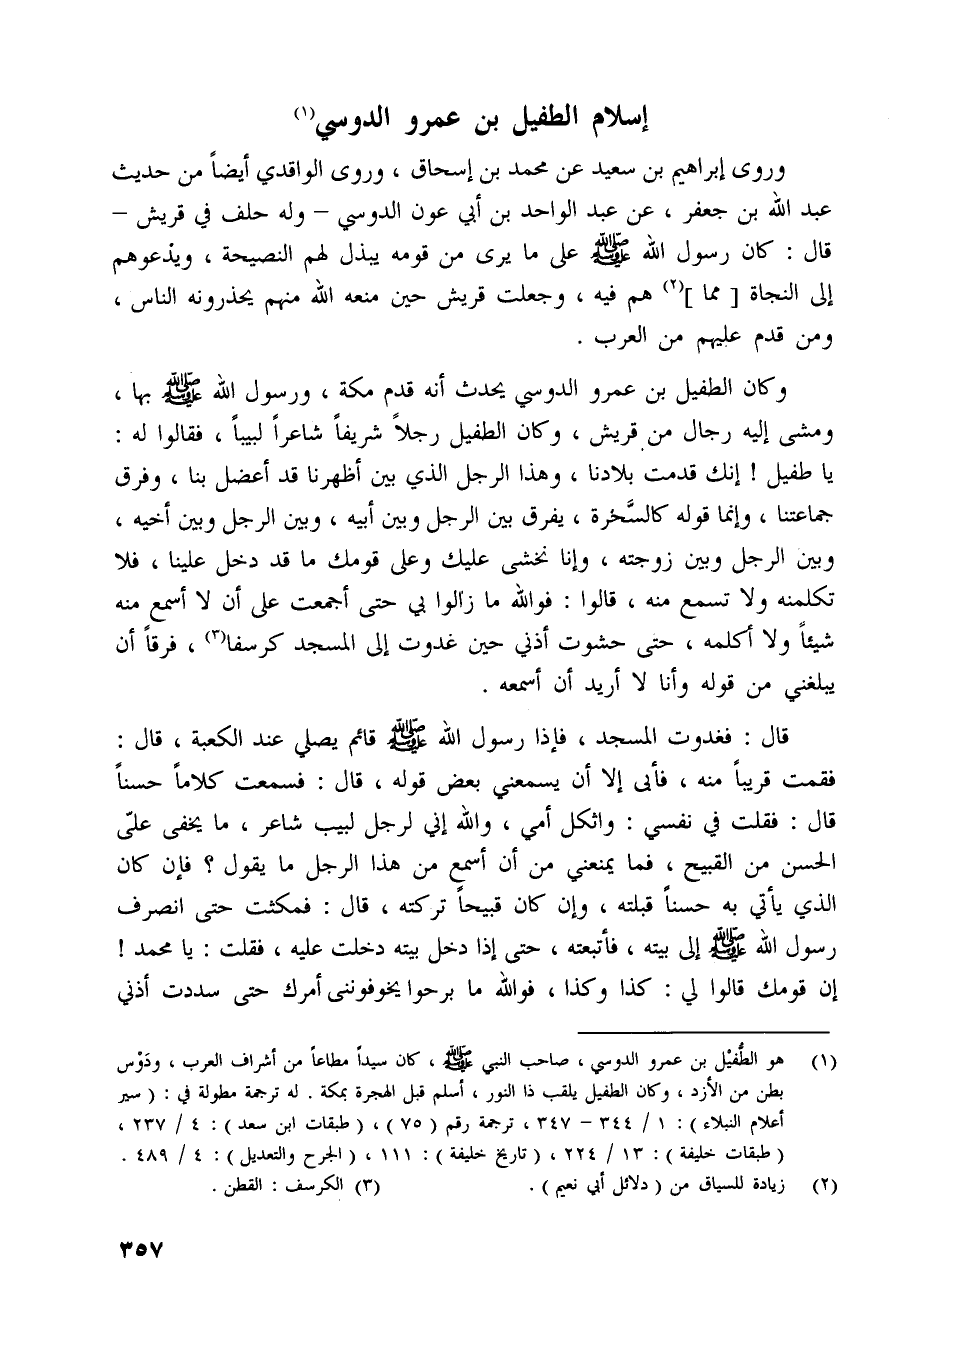 إسلام الطفيل بن عمرو الدوسي(١)
وروى إبراهيم بن سعيد عن محمد بن إسحاق ، وروى الواقدي أيضاً من حديث
عبد الله بن جعفر ، عن عبد الواحد بن أبي عون الدوسي – وله حلف في قريش –
قال : كان رسول الله ﷺ على ما يرى من قومه يبذل لهم النصيحة ، ويدْعوهم
إلى النجاة [ مما ](٢) هم فيه ، وجعلت قريش حين منعه الله منهم يحذرونه الناس ،
ومن قدم عليهم من العرب .
وكان الطفيل بن عمرو الدوسي يحدث أنه قدم مكة ، ورسول الله ﷺ بها ،
ومشى إليه رجال من قريش ، وكان الطفيل رجلاً شريفاً شاعراً لبيباً ، فقالوا له :
يا طفيل ! إنك قدمت بلادنا ، وهذا الرجل الذي بين أظهرنا قد أعضل بنا ، وفرق
جماعتنا ، وإنما قوله كالسَّحْرة ، يفرق بين الرجل وبين أبيه ، وبين الرجل وبين أخيه ،
وبين الرجل وبين زوجته ، وإنا نخشى عليك وعلى قومك ما قد دخل علينا ، فلا
تكلمنه ولا تسمع منه ، قالوا : فوالله ما زالوا بي حتى أجمعت على أن لا أسمع منه
شيئاً ولا أكلمه ، حتى حشوت أذني حين غدوت إلى المسجد كرسفا(٣) ، فرقاً أن
يبلغني من قوله وأنا لا أريد أن أسمعه .
قال : فغدوت المسجد ، فإذا رسول الله ﷺ قائم يصلي عند الكعبة ، قال :
فقمت قريباً منه ، فأبى إلا أن يسمعني بعض قوله ، قال : فسمعت كلاماً حسناً
قال : فقلت في نفسي : واثكل أمي ، والله إني لرجل لبيب شاعر ، ما يخفى عليّ
الحسن من القبيح ، فما يمنعني من أن أسمع من هذا الرجل ما يقول ؟ فإن كان
الذي يأتي به حسناً قبلته ، وإن كان قبيحاً تركته ، قال : فمكثت حتى انصرف
رسول الله ﷺ إلى بيته ، فأتبعته ، حتى إذا دخل بيته دخلت عليه ، فقلت : يا محمد !
إن قومك قالوا لي : كذا وكذا ، فوالله ما برحوا يخوفوننى أمرك حتى سددت أذني
(١) هو الطُّفيْل بن عمرو الدوسي ، صاحب النبي ﷺ ، كان سيداً مطاعاً من أشراف العرب ، ودَوْس
بطن من الأزد ، وكان الطفيل يلقب ذا النور ، أسلم قبل الهجرة بمكة . له ترجمة مطولة في : ( سير
أعلام النبلاء ) : ١ / ٣٤٤ – ٣٤٧ ، ترجمة رقم ( ٧٥ ) ، ( طبقات ابن سعد ) : ٤ / ٢٣٧ ،
( طبقات خليفة ) : ١٣ / ٢٢٤ ، ( تاريخ خليفة ) : ١١١ ، ( الجرح والتعديل ) : ٤ / ٤٨٩ .
(٢) زيادة للسياق من ( دلائل أبي نعيم ) . (٣) الكرسف : القطن .
٣٥٧